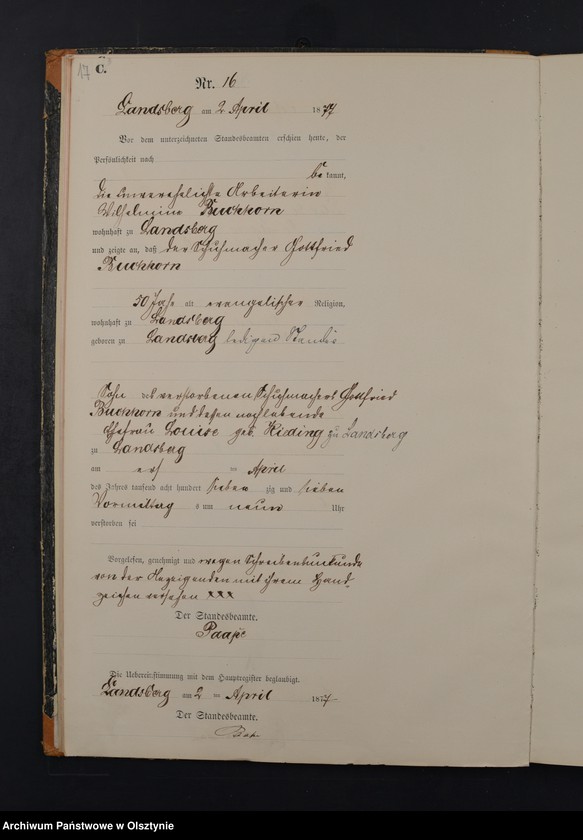 17
C.
Nr. 16
Landsberg am 2 April 1877
Vor dem unterzeichneten Standesbeamten erschien heute, der
Persönlichkeit nach
be kannt,
die unverehelichte Arbeiterin
Wilhelmine Buchhorn
wohnhaft zu Landsberg
und zeigte an, daß der Schuhmacher Gottfried
Buchhorn
50 Jahr alt evangelischer Religion,
wohnhaft zu Landsberg
geboren zu Landsberg ledigen Standes
Sohn des verstorbenen Schuhmachers Gottfried
Buchhorn und dessen nachlebende
Ehefrau Louise geb. zu Landsberg
zu Landsberg
am April
des Jahres tausend acht hundert sieben zig und sieben
Vormittag s um neun Uhr
verstorben sei
Vorgelesen, genehmigt und wegen Schreibensunkunde
von der Anzeigenden mit ihrem Hand-
zeichen versehen XXX
Der Standesbeamte.
Die Uebereinstimmung mit dem Hauptregister beglaubigt.
Landsberg am 2 ten April 1877
Der Standesbeamte.
Archiwum Państwowe w Olsztynie